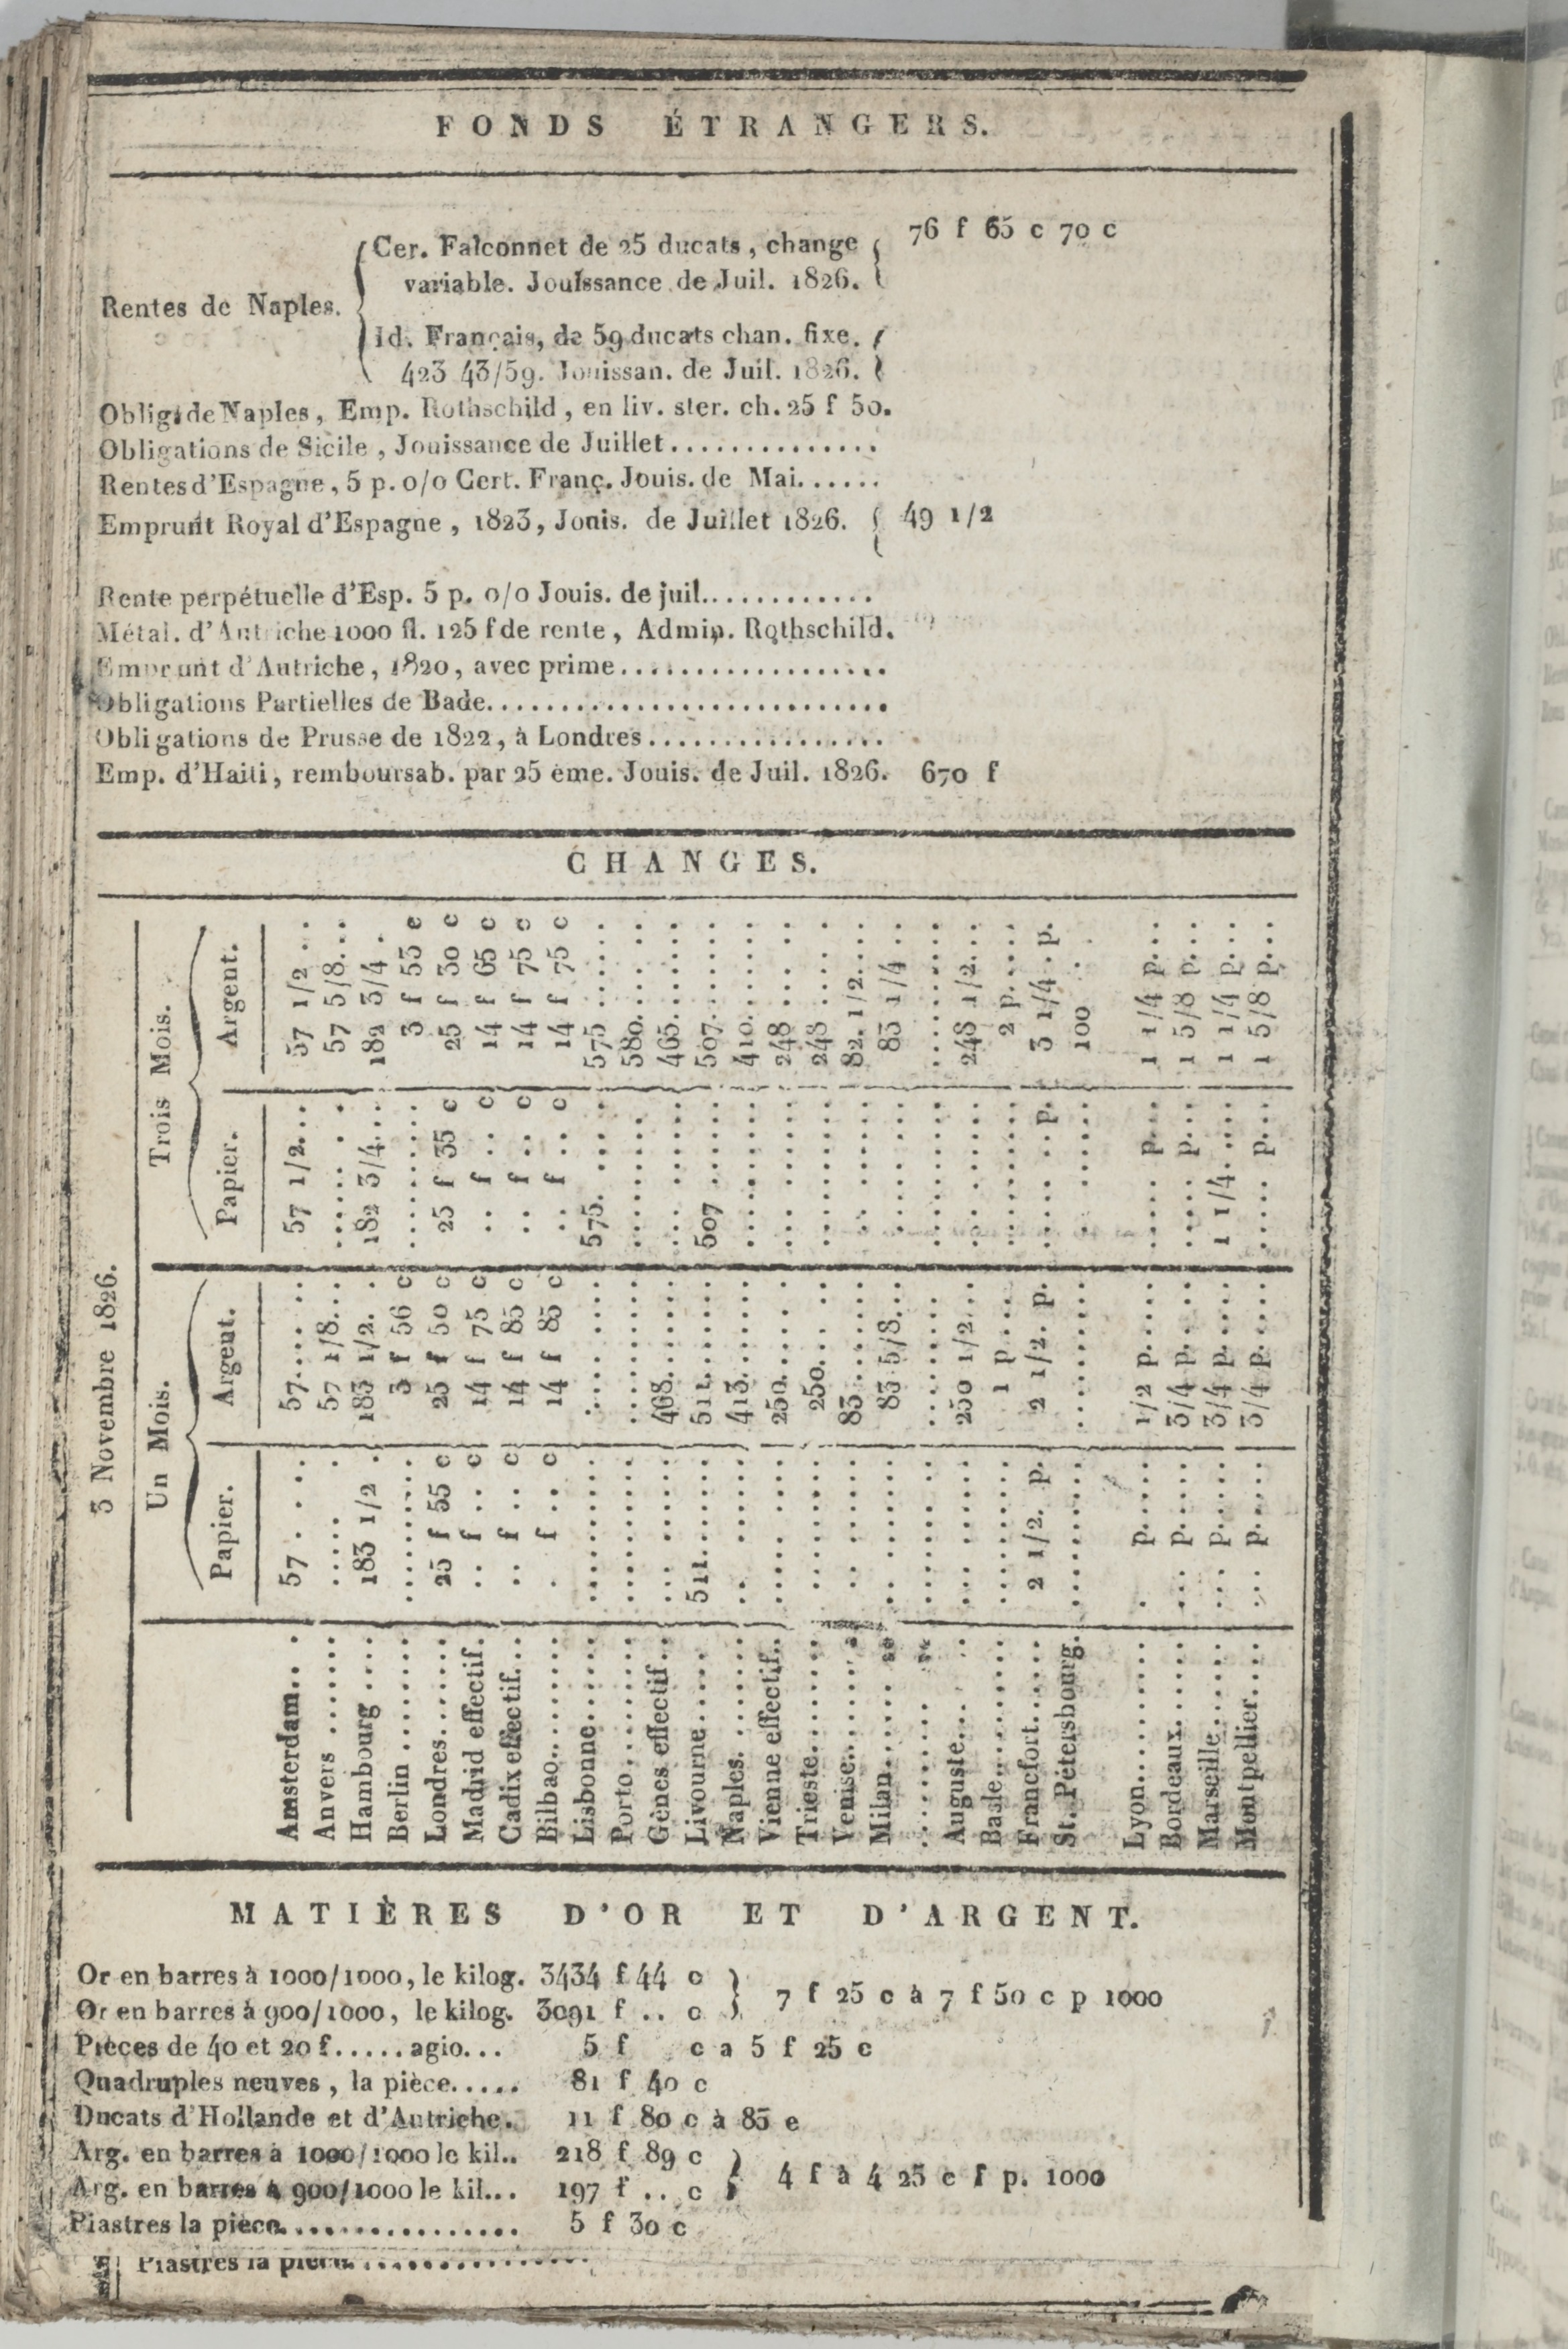 FONDS ÉTRANGERS.
Rentes de Naples.
Cer. Falconnet de 25 ducats, change
variable. Jouissance de Juil. 1826.
76 f 65 c 70 c
Id. Français, de 59 ducats chan. fixe.
423 43/59. Jouissan. de Juil. 1826.
Oblig. de Naples, Emp. Rothschild, en liv. ster. ch. 25 f 50.
Obligations de Sicile, Jouissance de Juillet..............
Rentes d'Espagne, 5 p. o/o Cert. Franç. Jouis. de Mai......
Emprunt Royal d'Espagne, 1823, Jouis. de Juillet 1826. 49 1/2
Rente perpétuelle d'Esp. 5 p. o/o Jouis. de juil............
Métal. d'Autriche 1000 fl. 125 f de rente, Admin. Rothschild.
Emprunt d'Autriche, 1820, avec prime..................
Obligations Partielles de Bade...........................
Obligations de Prusse de 1822, à Londres................
Emp. d'Haiti, remboursab. par 25 ème. Jouis. de Juil. 1826. 670 f
CHANGES.
3 Novembre 1826.
Un Mois. Trois Mois.
Papier. Argent. Papier. Argent.
Amsterdam... 57 .... 57...... 57 1/2... 57 1/2 ..
Anvers ....... ..... . 57 1/8... ...... . 57 5/8...
Hambourg .... 183 1/2 . 183 1/2. . 182 3/4... 182 3/4 .
Berlin ......... .......... 3 f 56 c ........ 3 f 53 c
Londres....... 25 f 55 c 25 f 50 c 25 f 35 c 25 f 30 c
Madrid effectif. .. f .. c 14 f 75 c .. f .. c 14 f 65 c
Cadix effectif... .. f .. c 14 f 85 c .. f .. c 14 f 75 c
Bilbao......... . f .. c 14 f 85 c .. f .. c 14 f 75 c
Lisbonne...... .......... ........ 575. .... 575......
Porto......... .......... ........ ........ 580. ....
Gènes effectif... .......... 468...... ........ 465......
Livourne ..... 511....... 511....... 507 ..... 507......
Naples........ .......... 413...... ........ 410......
Vienne effectif.. .......... 250..... ........ 248 ....
Trieste........ .......... 250. .. ........ 248 ...
Venise........ .......... 83 ..... ........ 82. 1/2....
Milan......... .......... 83 5/8... ........ 83 1/4 ..
.......... .......... ........ ........ ........
Auguste.... .. .......... 250 1/2... ........ 248 1/2...
Basle......... .......... 1 p.... ........ 2 p.....
Francfort...... 2 1/2. p. 2 1/2. p. ...... p. 3 1/4 . p.
St. Pétersbourg. .......... ........ ........ 100 . .
Lyon.......... . p..... 1/2 p..... ..... p... 1 1/4 p...
Bordeaux...... ... p..... 3/4 p. ... ..... p... 1 5/8 p...
Marseille...... ... p..... 3/4 p..... 1 1/4. .... 1 1/4 p...
Montpellier.... ... p..... 3/4 p..... ..... p... 1 5/8 p...
MATIÈRES D'OR ET D'ARGENT.
Or en barres à 1000/1000, le kilog. 3434 f 44 c
Or en barres à 900/1000, le kilog. 3091 f .. c
7 f 25 c à 7 f 50 c p 1000
Pièces de 40 et 20 f.....agio... 5 f c a 5 f 25 c
Quadruples neuves, la pièce..... 81 f 40 c
Ducats d'Hollande et d'Autriche. 11 f 80 c à 85 c
Arg. en barres à 1000/1000 le kil.. 218 f 89 c
Arg. en barres à 900/1000 le kil... 197 f .. c
4 f à 4 25 c f p. 1000
Piastres la pièce................ 5 f 30 c
Piastres la pièce................